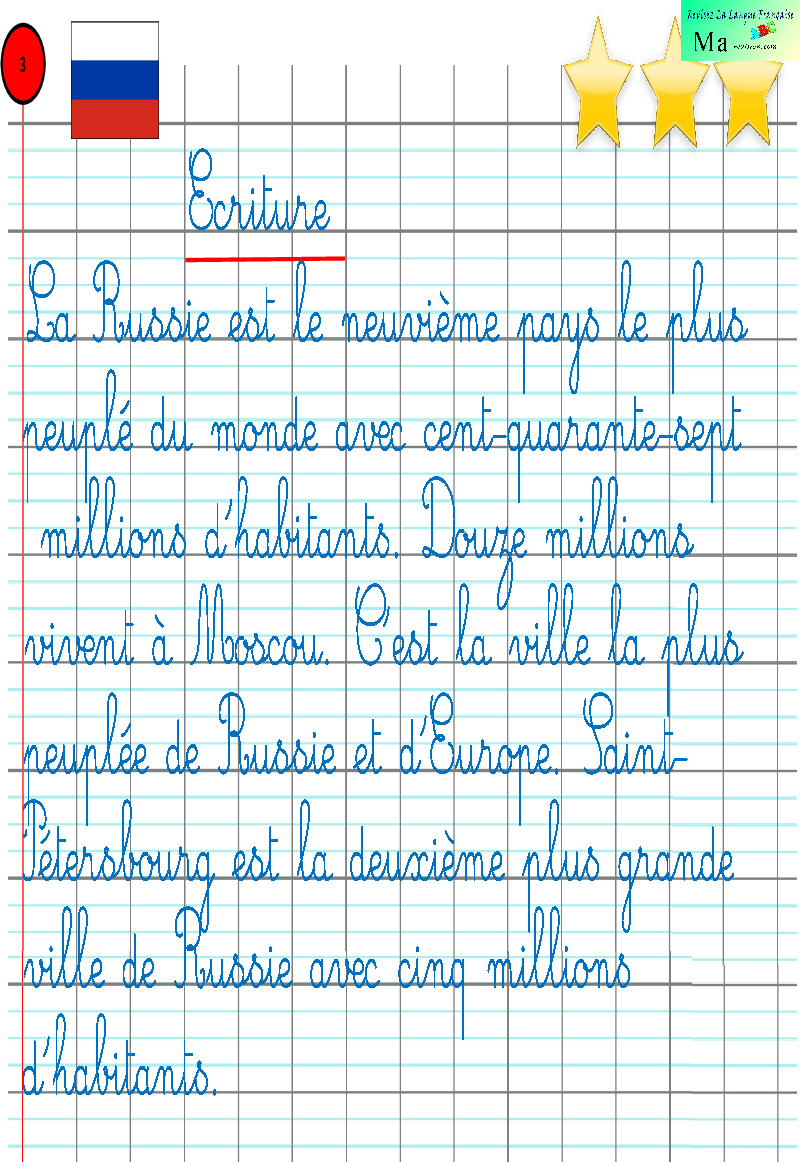 3
Revisez La Langue Française
Ma
Ecriture
La Russie est le neuvième pays le plus
peuplé du monde avec cent-quarante-sept
millions d'habitants. Douze millions
vivent à Moscou. C'est la ville la plus
peuplée de Russie et d'Europe. Saint-
Pétersbourg est la deuxième plus grande
ville de Russie avec cinq millions
d'habitants.